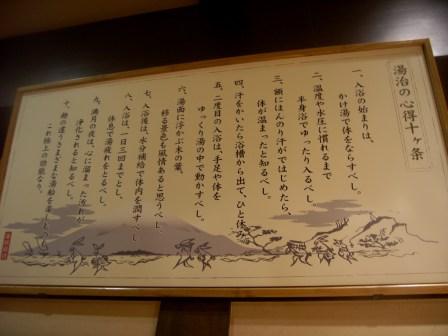 湯治の心得十ヶ条
一、入浴の始まりは、
かけ湯で体をならすべし。
二、温度や水圧に慣れるまで
半身浴でゆったり入るべし。
三、額にほんのり汗がではじめたら、
体が温まったと知るべし。
四、汗をかいたら浴槽から出て、ひと休み。
五、二度目の入浴は、手足や体を
ゆっくり湯の中で動かすべし。
六、湯面に浮かぶ木の葉、
移る景色も風情あると思うべし。
七、入浴後は、水分補給で体内を潤すべし
八、入浴は、一日三回までとし、
休息で湯疲れをとるべし。
九、満月の夜は、心に溜まった汚れが
浄化されると知るべし。
十、趣の違うさまざまな湯船を楽しむべし
これ極上の
なり。